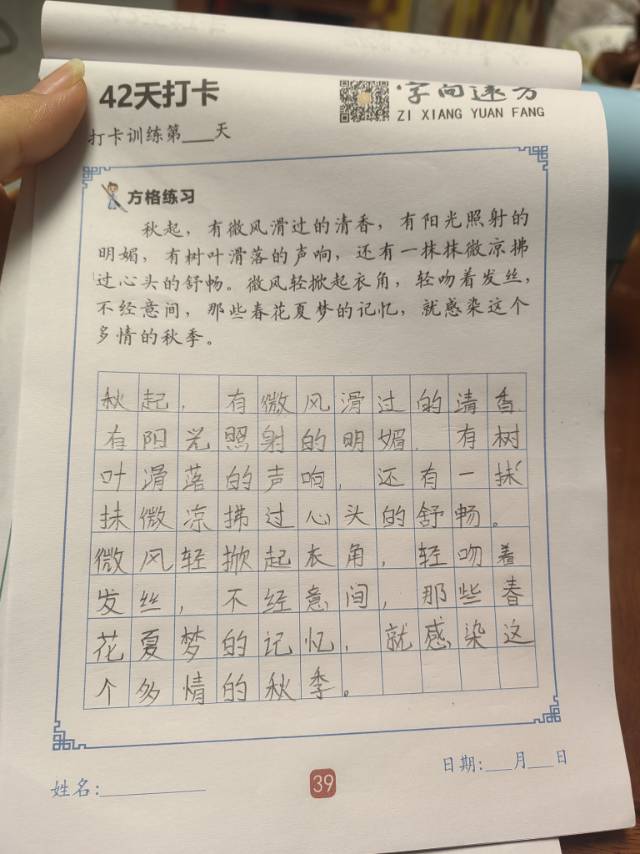 42天打卡
字向速方
ZI XIANG YUAN FANG
打卡训练第___天
方格练习
秋起，有微风滑过的清香，有阳光照射的
明媚，有树叶滑落的声响，还有一抹抹微凉拂
过心头的舒畅。微风轻掀起衣角，轻吻着发丝，
不经意间，那些春花夏梦的记忆，就感染这个
多情的秋季。
秋起，有微风滑过的清香
有阳光照射的明媚，有树
叶滑落的声响，还有一抹
抹微凉拂过心头的舒畅。
微风轻掀起衣角，轻吻着
发丝，不经意间，那些春
花夏梦的记忆，就感染这
个多情的秋季。
姓名:___________
39
日期:___月___日